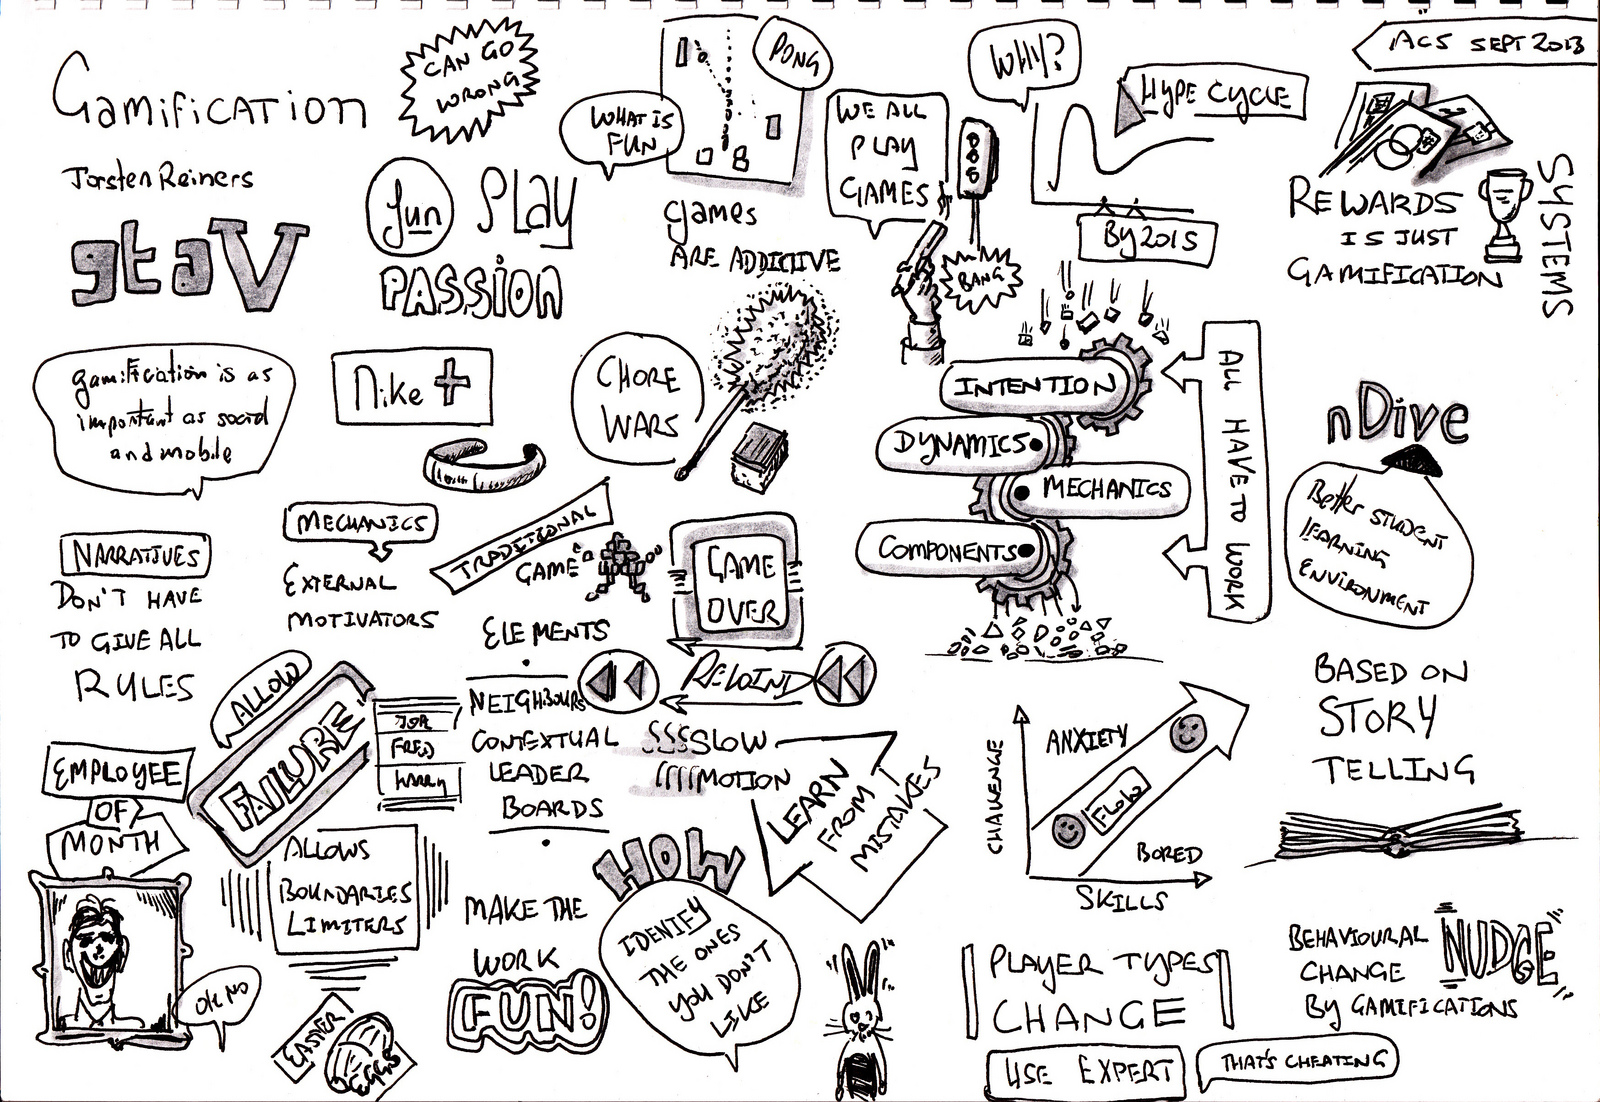 Gamification
Jorsten Reiners
gtaV
CAN GO
WRONG
fun PLAY
PASSION
WHAT IS
FUN
PONG
games
ARE ADDICTIVE
WE ALL
PLAY
GAMES
BANG
WHY?
HYPE CYCLE
BY 2015
ACS SEPT 2013
REWARDS
IS JUST
GAMIFICATION
SYSTEMS
gamification is as
important as social
and mobile
Nike +
CHORE
WARS
INTENTION
DYNAMICS
MECHANICS
COMPONENTS
ALL HAVE TO WORK
nDive
Better STUDENT
LEARNING
ENVIRONMENT
BASED ON
STORY
TELLING
NARRATIVES
DON'T HAVE
TO GIVE ALL
RULES
MECHANICS
EXTERNAL
MOTIVATORS
TRADITIONAL
GAME
ELEMENTS
GAME
OVER
REWIND
NEIGHBOURS
CONTEXTUAL
LEADER
BOARDS
SLOW
MOTION
LEARN
FROM
MISTAKES
ALLOW
FAILURE
FRED
HARRY
ALLOWS
BOUNDARIES
LIMITERS
EMPLOYEE
OF
MONTH
OH NO
EASTER
EGGS
MAKE THE
WORK
FUN!
HOW
IDENIFY
THE ONES
YOU DON'T
LIKE
CHALLENGE
ANXIETY
FLOW
BORED
SKILLS
PLAYER TYPES
CHANGE
USE EXPERT
THAT'S CHEATING
BEHAVIOURAL
CHANGE
BY GAMIFICATIONS
NUDGE